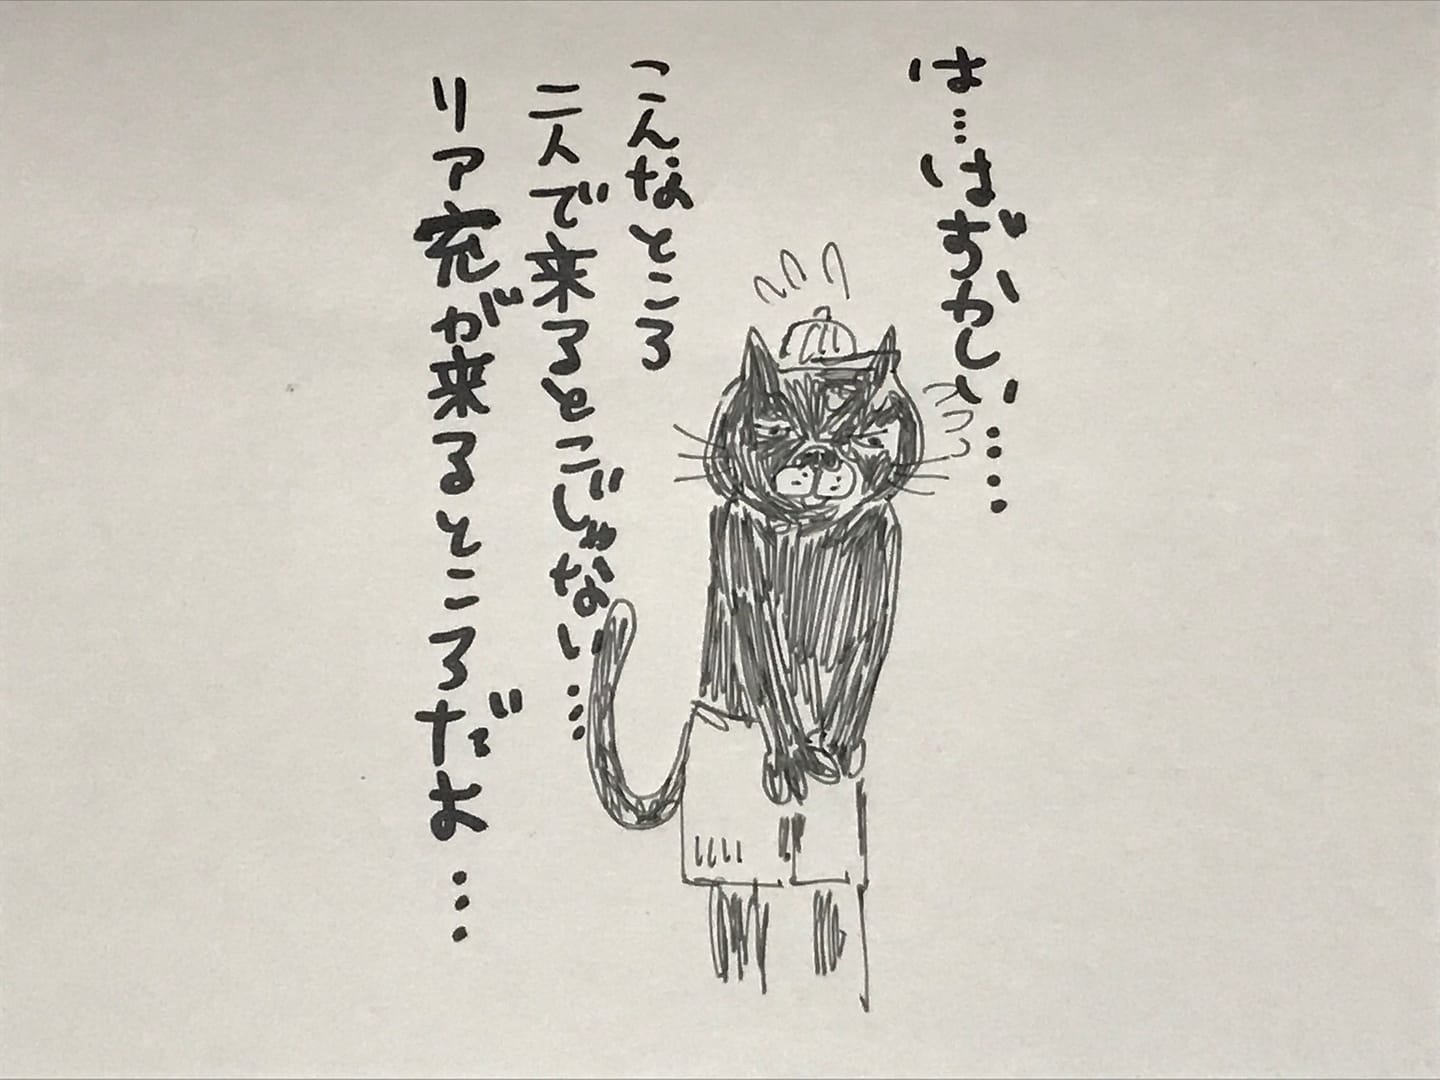 は…はぢかしい……
こんなところ
二人で来るとこじゃない…
リア充が来るところだよ…